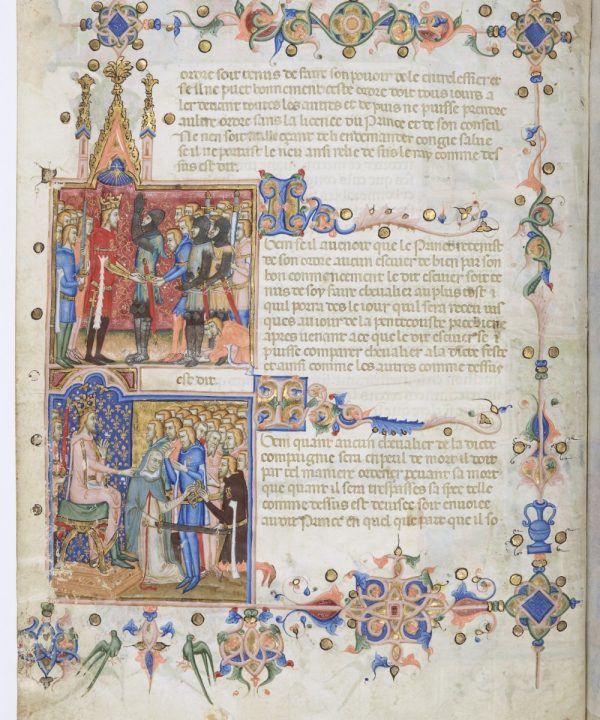 ordre soit tenus de faire son pouoir de le entrelessier et
se il ne puet bonnement ceste ordre doit tous iours a
ler deuant toutes les autres et de puis ne puisse prendre
autre ordre sans la licence du Prince et de son conseil
se il ne portast le neu ansi relie de sus le ray comme des
sus est dit.
Item se il auenoit que le Prince retenist
de son ordre aucun escuier de bien par son
bon commencement le dit escuier soit te
nus de soy faire cheualier au plus tost
quil pourra des le iour quil sera receu ius
ques au iour de la pentecouste prochiene
apres uenant a ce que le dit escuier
puisse comparer cheualier a la dicte feste
et ausi comme les autres comme dessus
est dit.
Item quant aucun cheualier de la dicte
compaignie sera en peril de mort il doit
par tel maniere ordener deuant sa mort
que quant il sera trespasses sa spee telle
comme dessus est deuisee soit enuoiee
au dit Prince en quel que part que il so